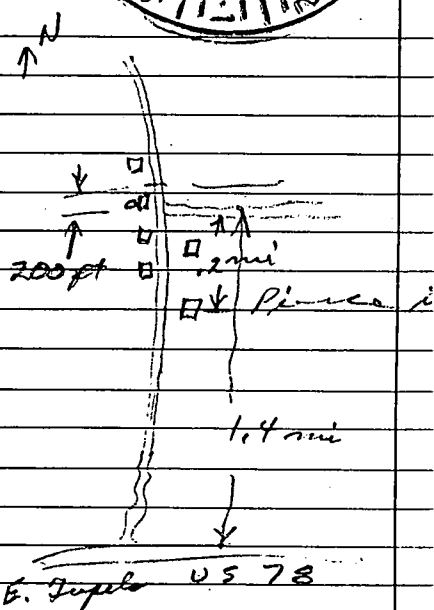 N
200 ft
.2 mi
1.4 mi
E. Tupelo US 78